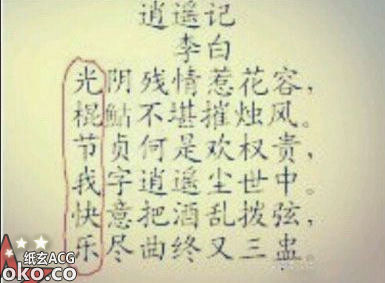 逍遥记
李白
光阴残情惹花容,
棍鲇不堪摧烛风。
节贞何是欢权贵,
我字逍遥尘世中。
快意把酒乱拨弦,
乐尽曲终又三盅。
纸玄ACG
oko.co